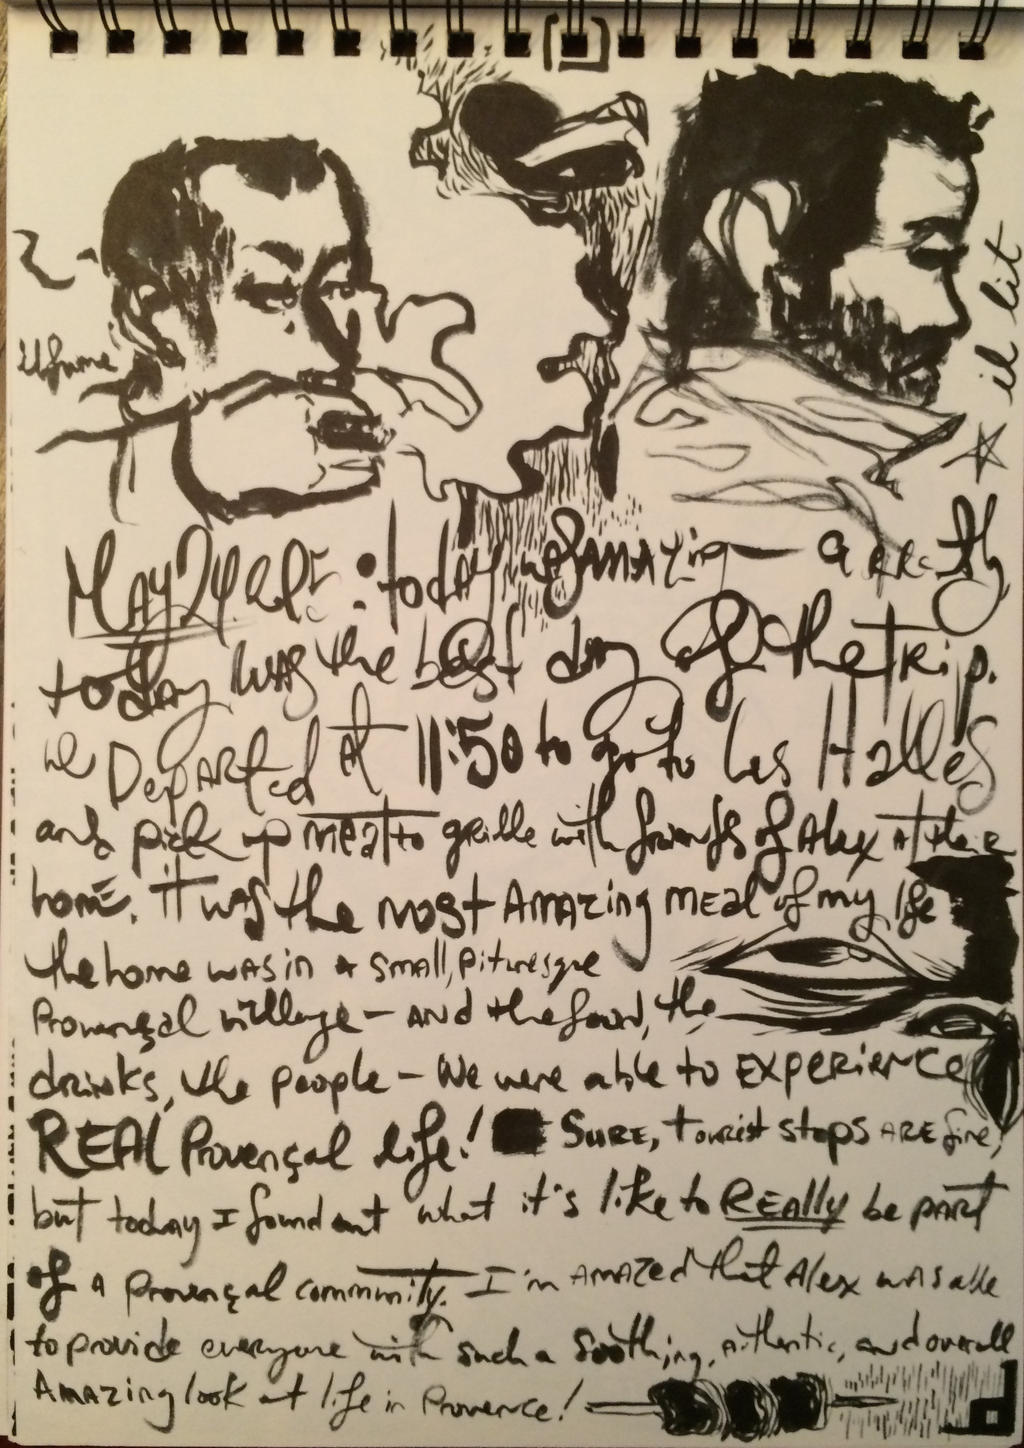 il fume
il lit
MAY 24. RDI: today was AMAZing — directly
today WAS the best day of the TRip.
we DepARted At 11:50 to go to Les Halles
and pick up meat to grille with friends of Alex at their
home. IT was the most AMAZing meal of my life
the home was in a small, pituresque
Provençal village — AND the food, the
drinks, the people — We were able to EXPERIENCE
REAl Provençal life! SURE, tourist stops ARE fine,
but today I found out what it's like to REAlly be part
of a provençal community. I'm AMAZed that Alex was able
to provide everyone with such a soothing, authentic, and overall
AMAZing look at life in Provence!